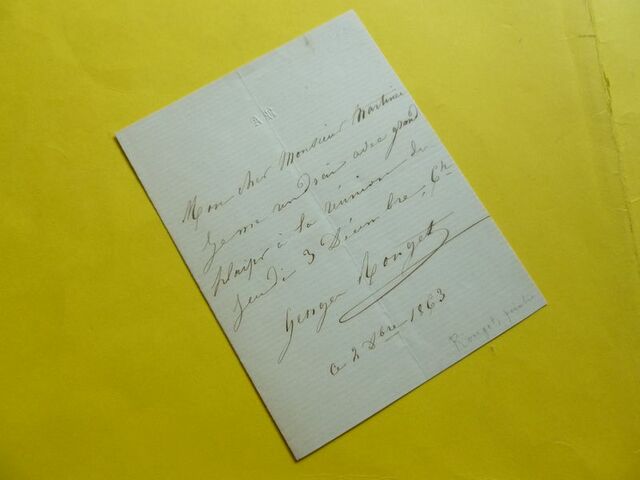 Mon cher Monsieur Martinet
Je me rendrai avec grand
plaisir à la réunion de
Jeudi 3 Décembre, 6h
Georges Rouget
ce 2 Xbre 1863
Rouget, peintre